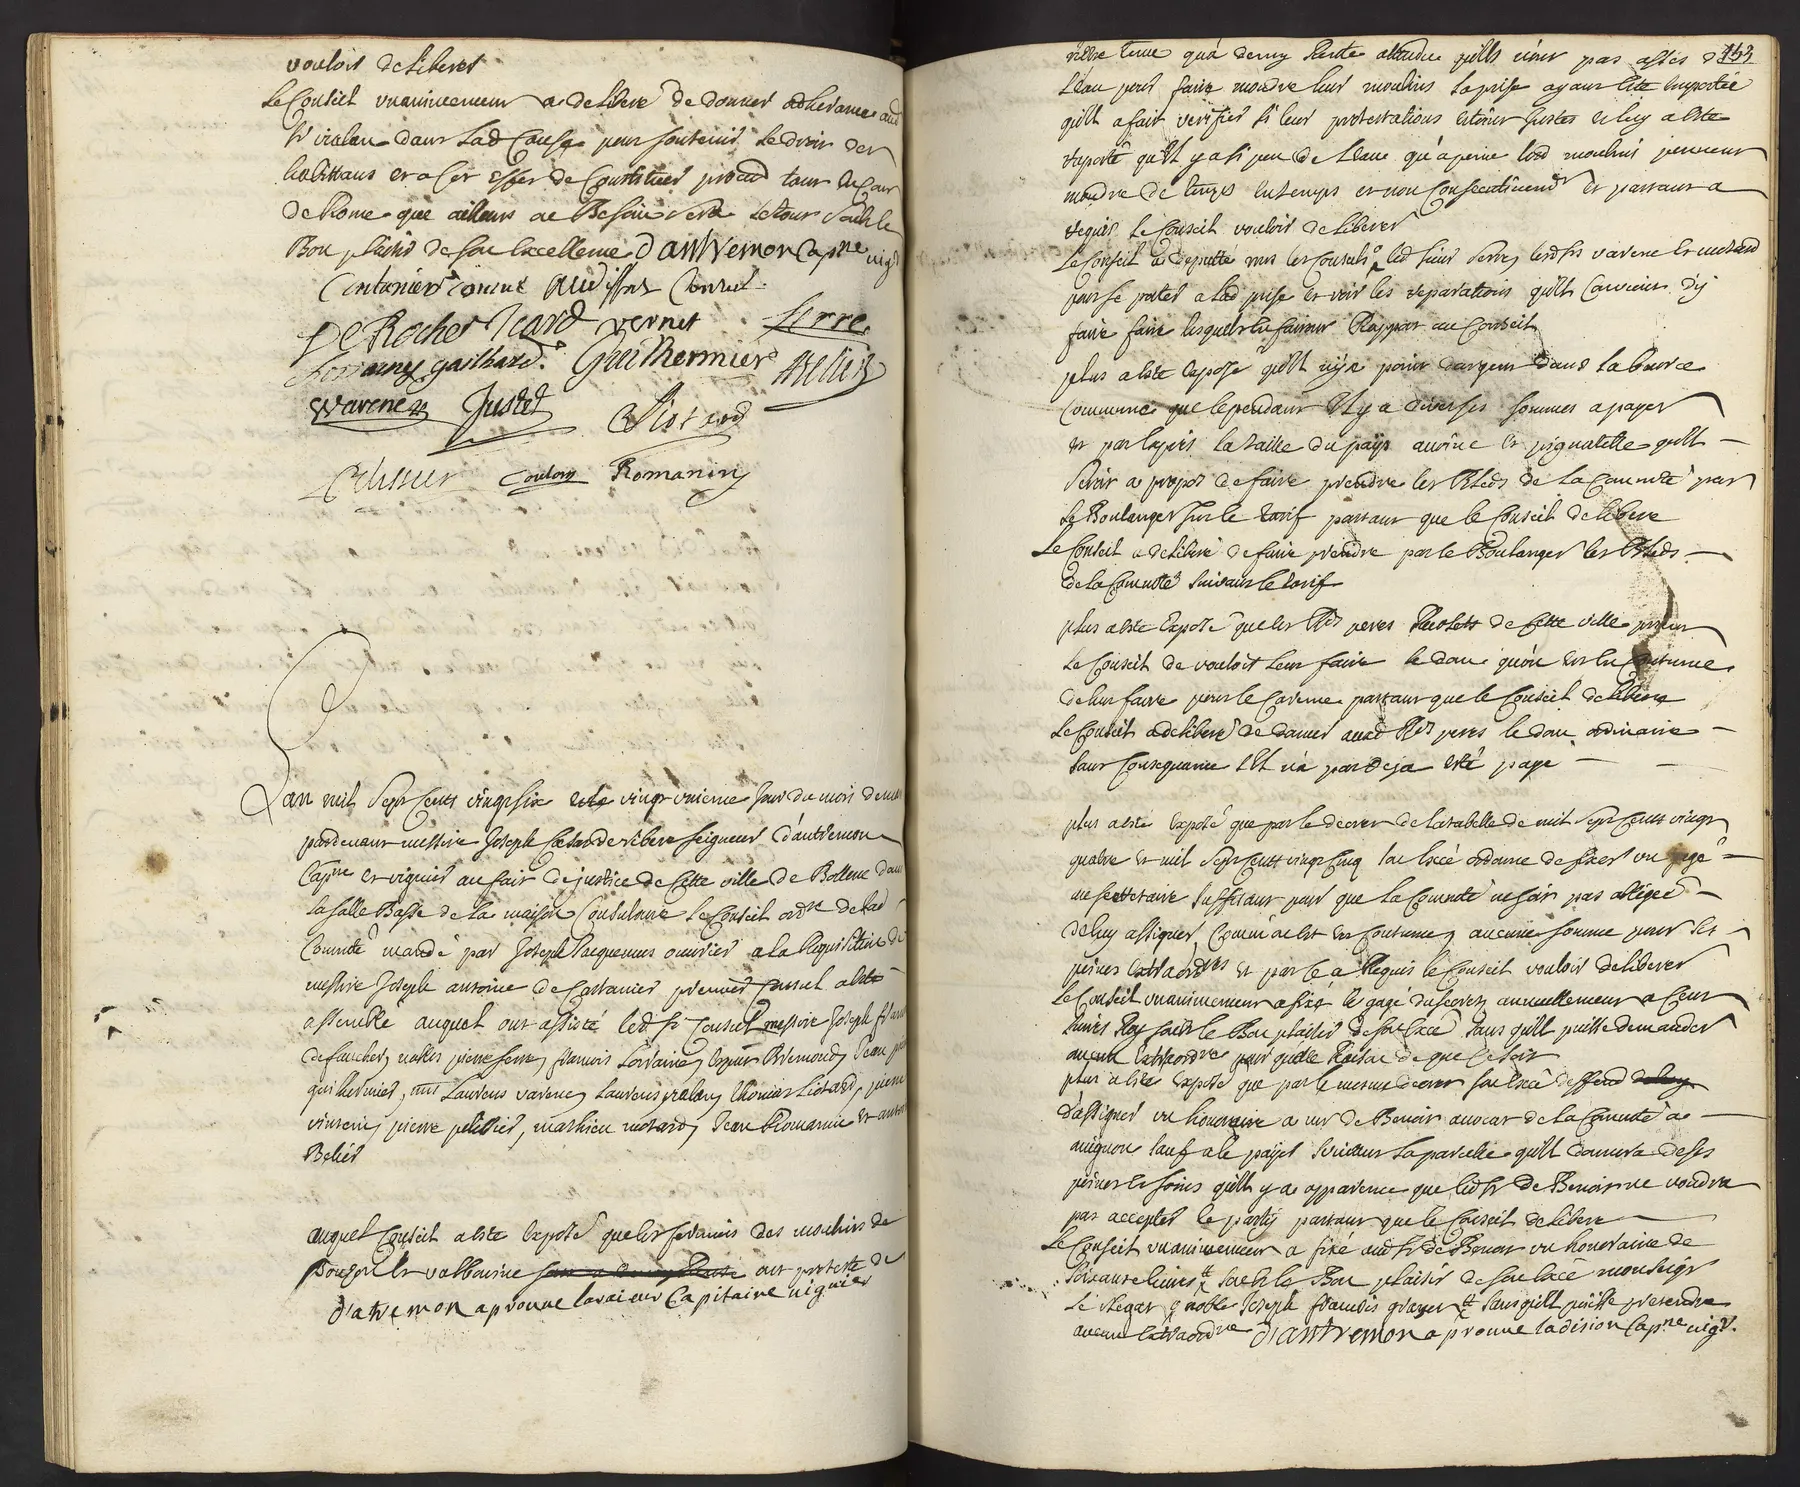 vouloir deliberer
Le Conseil unanimement a deliberé de donner adherance aud
Sr vialan dans lad Cause pour soutenir le droir des
habittans et a cet effet de Constituer procur tant en Cour
de Rome que ailleurs ou Besoin sera le tout soubs le
Bon plaisir de son Excellence Dantremon Capne vigr
Consul
De Rocher Icard vernet Serre
gailhard. Guilhermier
Varene Justet
Romanin
Lan mil sept cents vingt six et le vingt unieme Jour du mois de
pardevant messire Joseph de ribere seigneur d'autremon
Capne et viguier au fait de justice de Cette ville de Bollene dans
la salle Basse de la maison Consulaire le Conseil ordre de lad
Comnté mandé par Joseph Jacquemus ouvrier a la Requisition de
messire Joseph antoine de Castanier premier Consul a esté
assemblé auquel ont assisté led Sr Consul messire Joseph
de faucher, nobles pierre serre, francois Lorraine, Bremond, Jean
guilhermier, mrs Laurens varene, Laurens vialan, Thomas Liotard, pierre
vincent, pierre pelissier, mathieu motard, Jean Romanin et
Belier
auquel Conseil a esté Exposé que les fermiers des moulins de
et valbonne ont protesté de
d'antremon aprouve Capitaine viguier
153
n'estre tenus qu'a demy Rente attandeu quils n'ont pas asses d
Leau pour faire moudre leurs moulins la prise ayant Esté Emportée
quil a fait verifier si leurs protestations Estoint Justes et luy a esté
raporté quil y a si peu de Leau qu'a peine lesd moulins peuvent
moudre de temps en temps et non Consecutivemt et partant a
requis le Conseil vouloir deliberer
Le Conseil a deputté mrs les Consuls, led sieur Serre, lesd srs varene et motard
pour se porter a lad prise et voir les reparations quil Convient d'y
faire faire lesquels En fairont Rapport au Conseil
plus a esté Exposé quil n'y a point d'argent dans la Bource
Commune que cependant Il y a diverses sommes a payer
et par Exprés la taille du pays avoine et pignatelle quil
seroit a propos de faire prendre les Bleds de la Comnuté par
Le Boulanger sur le tarif partant que le Conseil delibere
Le Conseil a deliberé de faire prendre par le Boulanger les Bleds
de la Comnuté suivant le tarif
plus a esté Exposé que les Rds peres Recolets de Cette ville prient
Le Conseil de vouloir leur faire le don qu'on est En Coutume
de leur faire pour le Careme partant que le Conseil delibere
Le Conseil a deliberé de donner auxd Rds peres le don ordinaire
sans Consequance s'il n'a pas deja esté payé
plus a esté Exposé que par le decret de la tabelle de mil sept cents vingt
quatre et mil sept cents vingt cinq son Excé ordonne de fixer un gage
au secrettaire suffisant pour que la Comnuté ne soit pas obligée
de luy assigner, Comm'a est En Coutume, aucune somme pour ses
peines Extraordres et par Ce a Requis le Conseil vouloir deliberer
Le Conseil unanimement a fixé le gage du secret annuellement a Cent
livres Roy sous le Bon plaisir de son Excé sans quil puisse demander
aucun Extraordre pour quelle Raison que Ce soit
plus a esté Exposé que par le mesme decret son Excé deffend
d'assigner un honoraire a mr de Benoit avocat de la Comnuté a
avignon sauf a le payer suivant la parcelle quil donnera de ses
peines et soins quil y a apparence que led Sr de Benoit ne voudra
pas accepter le party partant que le Conseil delibere
Le Conseil unanimement a fixé aud Sr de Benoit un honoraire de
soixante livres soubs le Bon plaisir de son Excé monseigr
Le Legat noble Joseph francois sans quil puisse pretendre
aucun Extraordre d'antremon aprouve la dision Capne vigr.